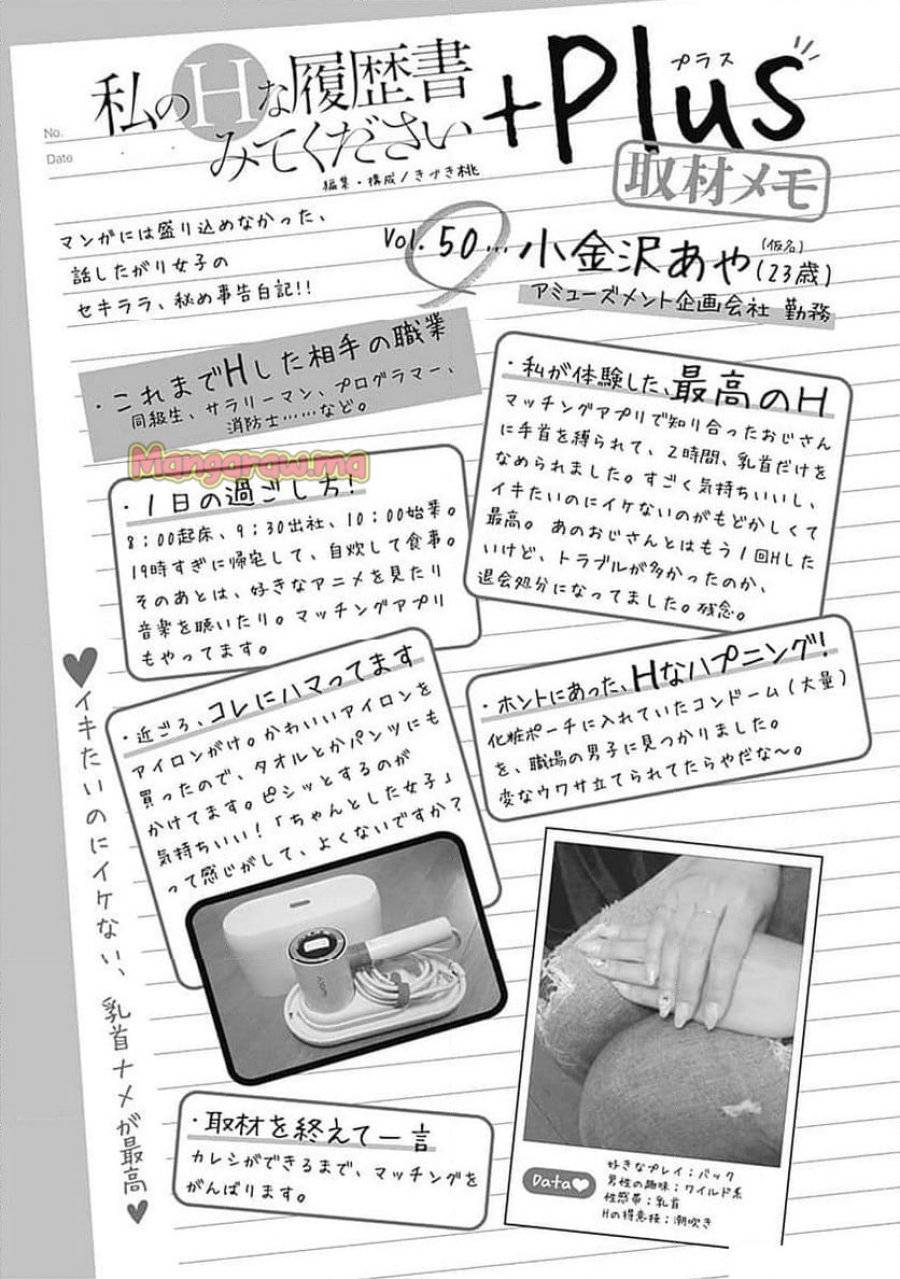 No.
Date
私のHな履歴書
みてください
+Plus
プラス
編集・構成/きづき桃
取材メモ
マンガには盛り込めなかった、
話したがり女子の
セキララ、秘め事告白記!!
Vol. 50…小金沢あや(23歳)
(仮名)
アミューズメント企画会社 勤務
・これまでHした相手の職業
同級生、サラリーマン、プログラマー、
消防士……など。
Mangaraw.ma
・私が体験した、最高のH
マッチングアプリで知り合ったおじさん
に手首を縛られて、2時間、乳首だけを
なめられました。すごく気持ちいいし、
イキたいのにイケないのがもどかしくて
最高。あのおじさんとはもう1回Hした
いけど、トラブルが多かったのか、
退会処分になってました。残念。
・1日の過ごし方!
8:00起床、9:30出社、10:00始業。
19時すぎに帰宅して、自炊して食事。
そのあとは、好きなアニメを見たり
音楽を聴いたり。マッチングアプリ
もやってます。
・近ごろ、コレにハマってます
アイロンがけ。かわいいアイロンを
買ったので、タオルとかパンツにも
かけてます。ピシッとするのが
気持ちいい!「ちゃんとした女子」
って感じがして、よくないですか?
・ホントにあった、Hなハプニング!
化粧ポーチに入れていたコンドーム(大量)
を、職場の男子に見つかりました。
変なウワサ立てられてたらやだな〜。
♥イキたいのにイケない、乳首ナメが最高♥
・取材を終えて一言
カレシができるまで、マッチングを
がんばります。
Data♥
好きなプレイ:バック
男性の趣味:ワイルド系
性感帯:乳首
Hの得意技:潮吹き